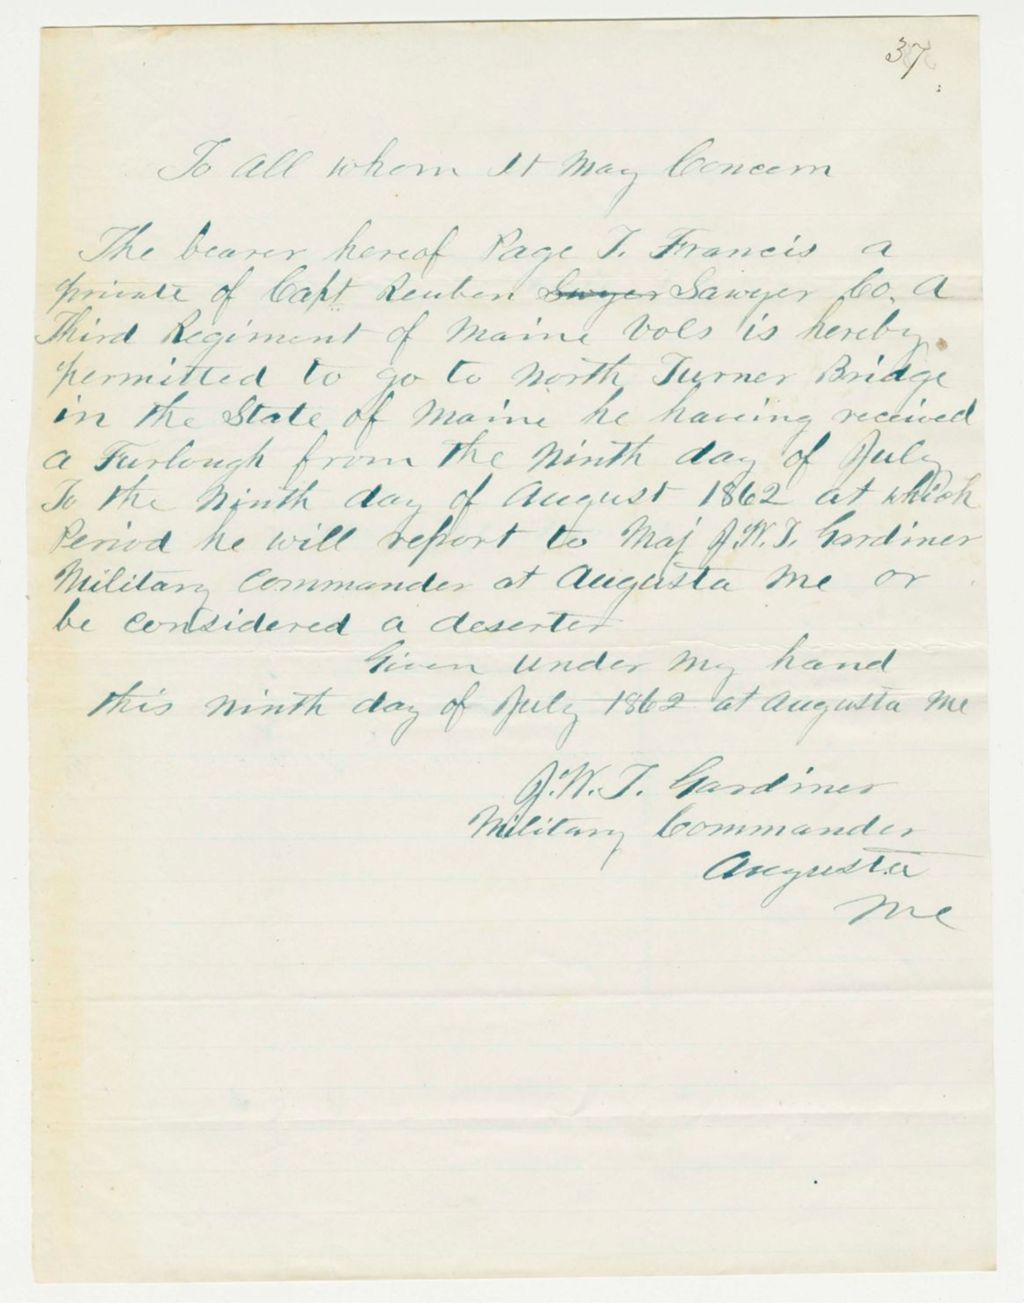 37
To All whom It May Concern
The bearer hereof Page T. Francis a
private of Capt Reuben Sawyer Co. A
Third Regiment of Maine Vols is hereby
permitted to go to North Turner Bridge
in the State of Maine he having received
a Furlough from the Ninth day of July
To the Ninth day of August 1862 at which
Period he will report to Maj J.W.T. Gardiner
Military Commander at Augusta Me or
be considered a deserter
Given under my hand
this ninth day of July 1862 at Augusta Me
J.W.T. Gardiner
Military Commander
Augusta
Me